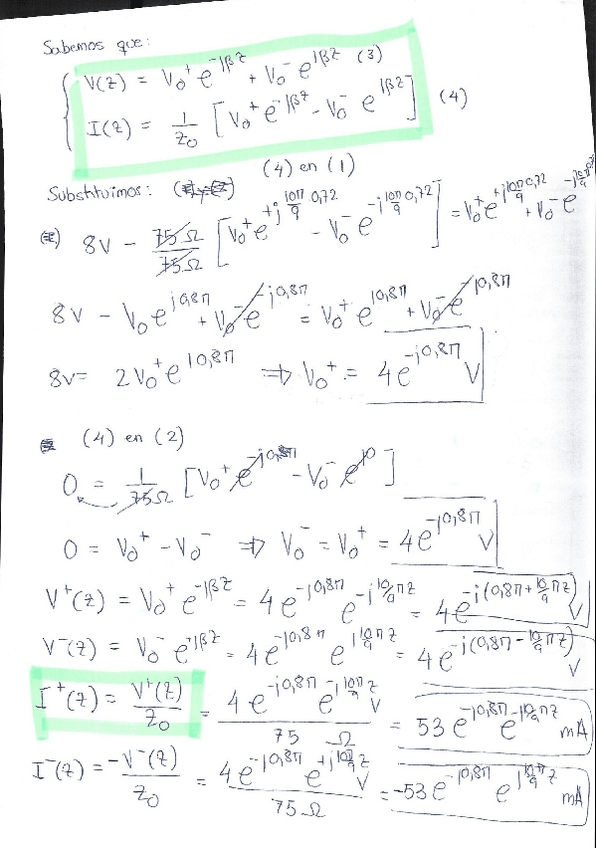 Sabemos que:
V(z) = V₀⁺ e^{-jβz} + V₀⁻ e^{jβz} (3)
I(z) = 1/Z₀ [V₀⁺ e^{-jβz} - V₀⁻ e^{jβz}] (4)
(4) en (1)
Substituimos:
8V - 75Ω/75Ω [V₀⁺ e^{+j 10π/9 0,72} - V₀⁻ e^{-j 10π/9 0,72}] = V₀⁺ e^{+j 10π/9 0,72} + V₀⁻ e^{-j 10π/9 0,72}
8V - V₀ e^{j0,8π} + V₀⁻ e^{-j0,8π} = V₀⁺ e^{j0,8π} + V₀⁻ e^{j0,8π}
8V = 2V₀⁺ e^{j0,8π} ⇒ V₀⁺ = 4e^{-j0,8π} V
(4) en (2)
0 = 1/75Ω [V₀⁺ e^{-j0} - V₀⁻ e^{j0}]
0 = V₀⁺ - V₀⁻ ⇒ V₀⁻ = V₀⁺ = 4e^{-j0,8π} V
V⁺(z) = V₀⁺ e^{-jβz} = 4e^{-j0,8π} e^{-j 10/9 πz} = 4e^{-j(0,8π + 10/9 πz)} V
V⁻(z) = V₀⁻ e^{+jβz} = 4e^{-j0,8π} e^{j 10π/9 z} = 4e^{-j(0,8π - 10/9 πz)} V
I⁺(z) = V⁺(z)/Z₀ = 4e^{-j0,8π} e^{-j 10π/9 z} V / 75 Ω = 53 e^{-j0,8π} e^{-j 10/9 πz} mA
I⁻(z) = -V⁻(z)/Z₀ = 4e^{-j0,8π} e^{+j 10π/9 z} V / 75Ω = -53 e^{-j0,8π} e^{j 10/9 πz} mA